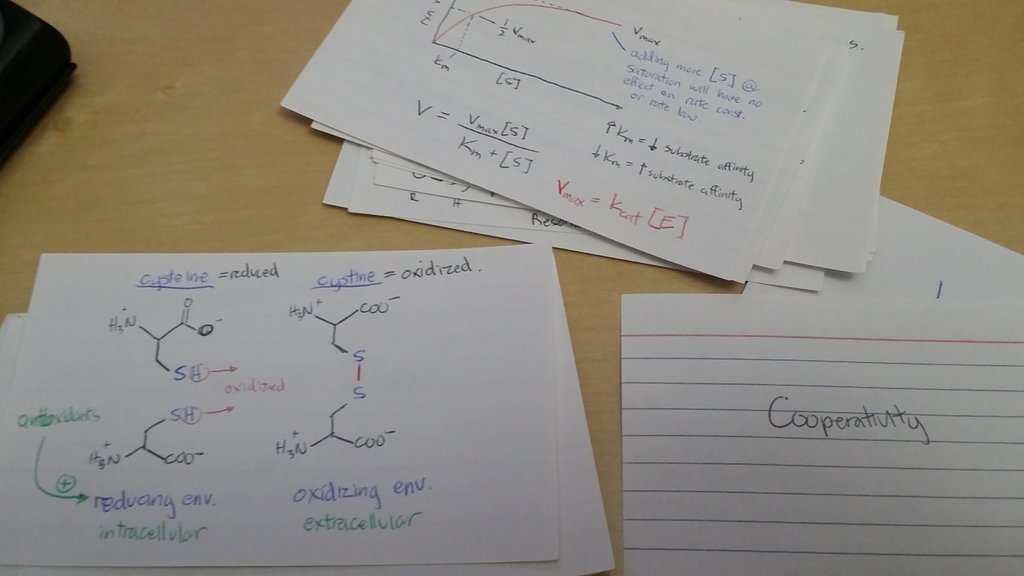 ½ Vmax
Vmax
Km
[S]
adding more [S] @
saturation will have no
effect on rate const.
or rate law
V = Vmax[S]
Km + [S]
↑ Km = ↓ substrate affinity
↓ Km = ↑ substrate affinity
Vmax = Kcat [E]
5.
R H
cysteine = reduced
cystine = oxidized.
H₃N⁺
O
O⁻
SH
oxidized
SH
H₃N⁺
COO⁻
antioxidants
+
reducing env.
intracellular
H₃N⁺
COO⁻
S
S
H₃N⁺
COO⁻
oxidizing env.
extracellular
Cooperativity